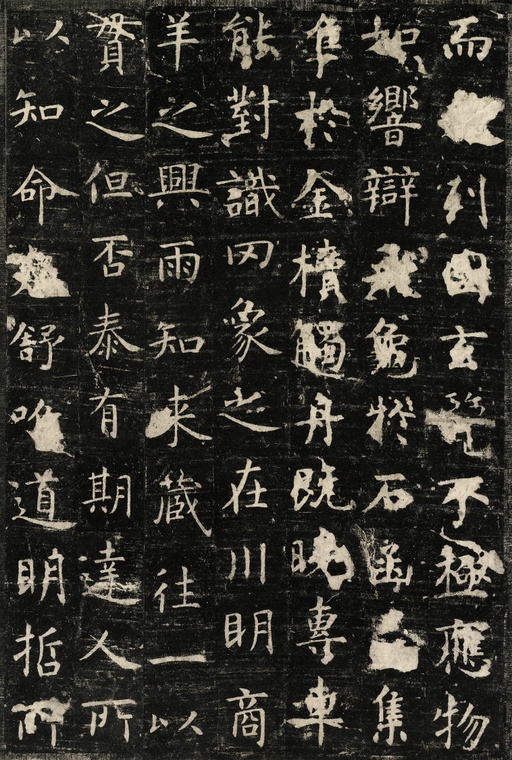 而列國玄不極應物
如響辯飛龜於石函集
隼於金櫝觸舟既曉專車
能對識罔象之在川明商
羊之興雨知来藏往一以
貫之但否泰有期達人所
以知命卷舒唯道明哲所